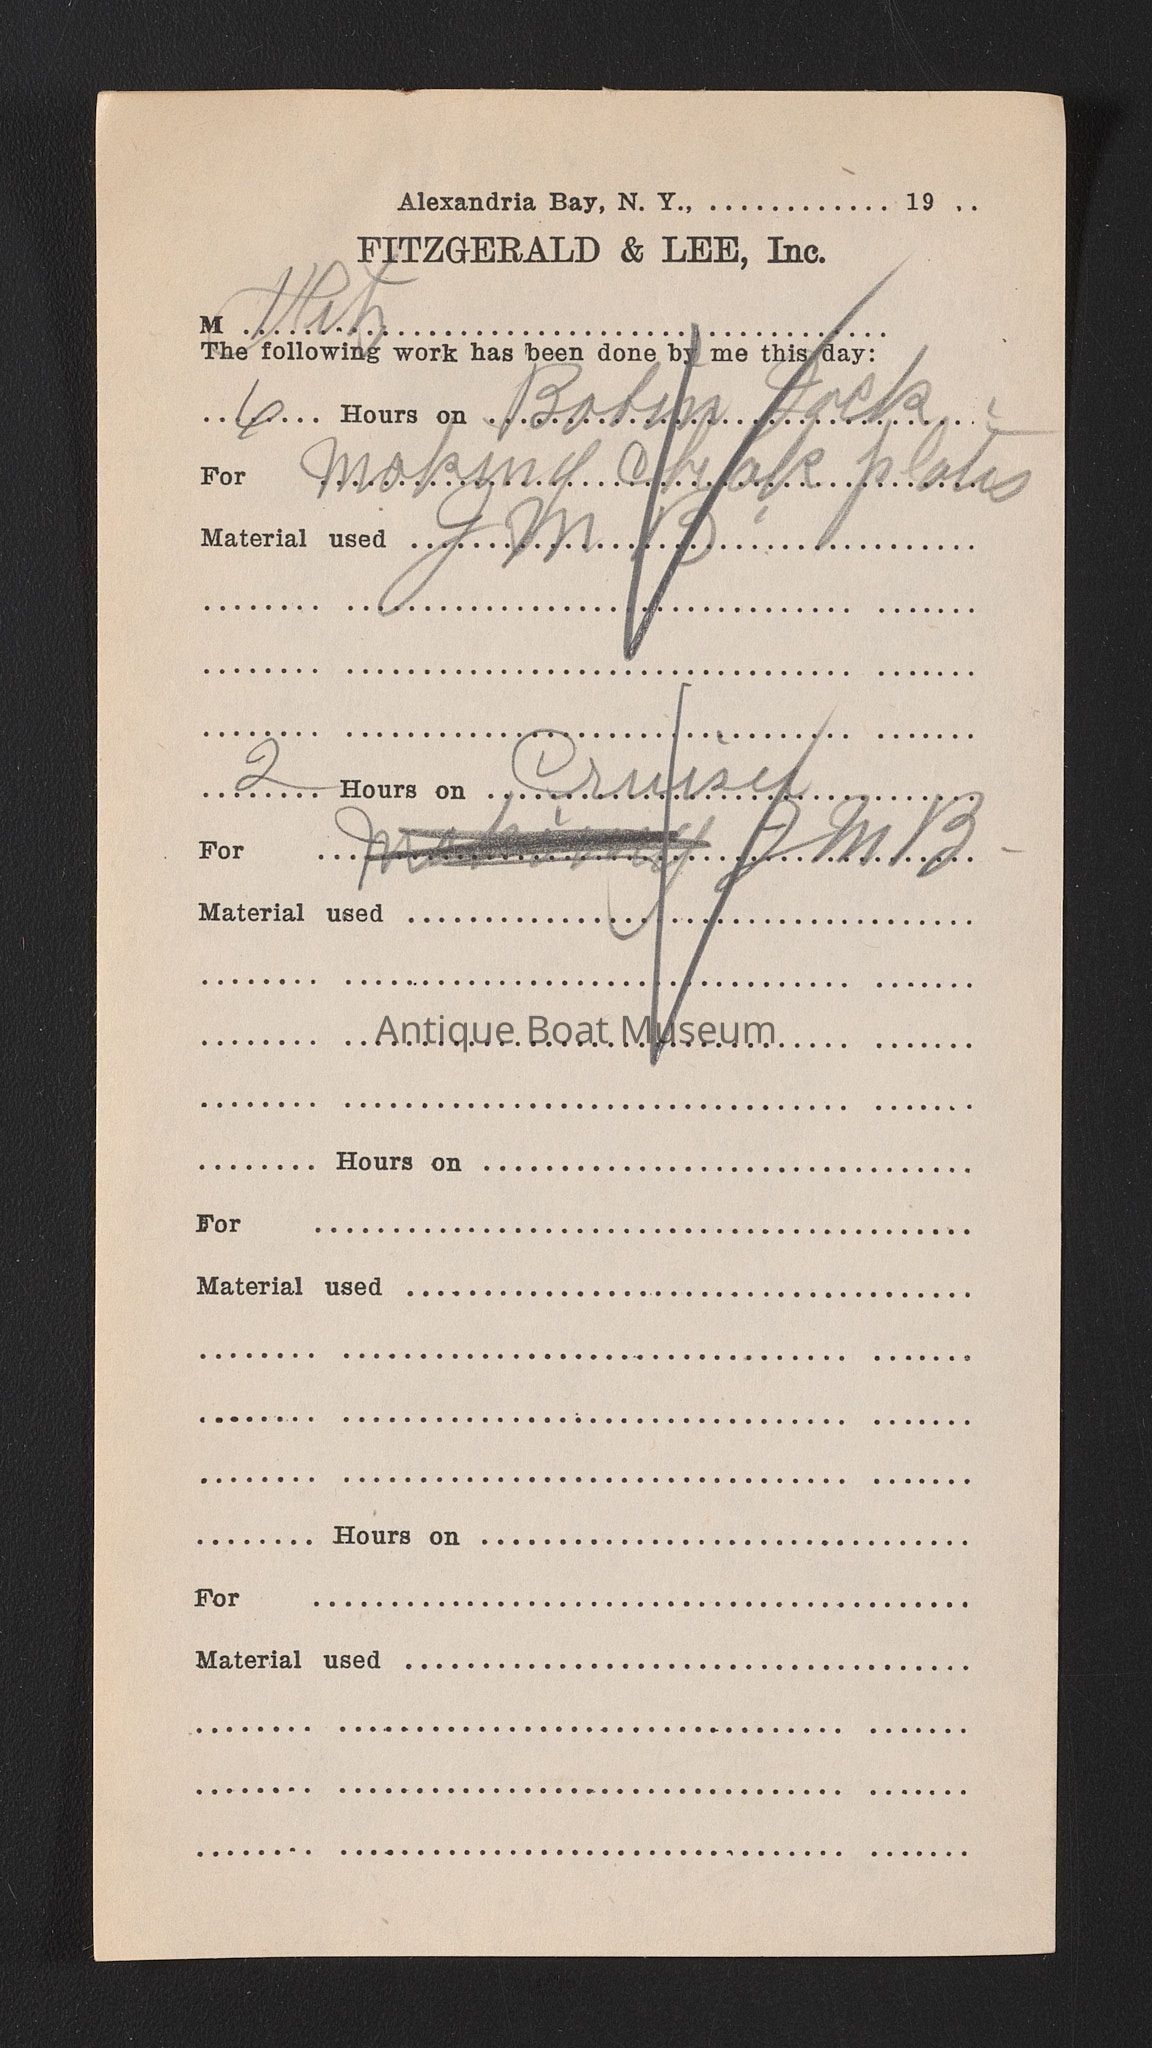 Alexandria Bay, N. Y., ............ 19 ..
FITZGERALD & LEE, Inc.
M ..........................................
The following work has been done by me this day:
6 Hours on Bobin Jack
For making chalk plates
Material used J M B
........ ................................. .......
........ ................................. .......
........ ................................. .......
2 Hours on Cruiser
For making J M B -
Material used .....................................
........ ................................. .......
Antique Boat Museum
........ ................................. .......
........ ................................. .......
........ Hours on ................................
For ...........................................
Material used .....................................
........ ................................. .......
........ ................................. .......
........ ................................. .......
........ Hours on ................................
For ...........................................
Material used .....................................
........ ................................. .......
........ ................................. .......
........ ................................. .......